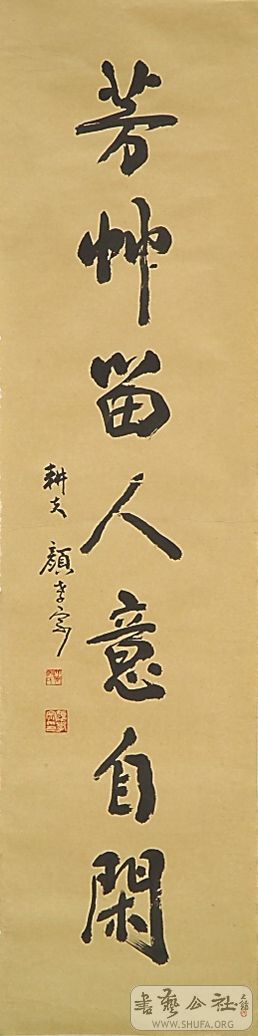 芳艸留人意自閑
耕夫 顏李家
書藝公社
WWW.SHUFA.ORG